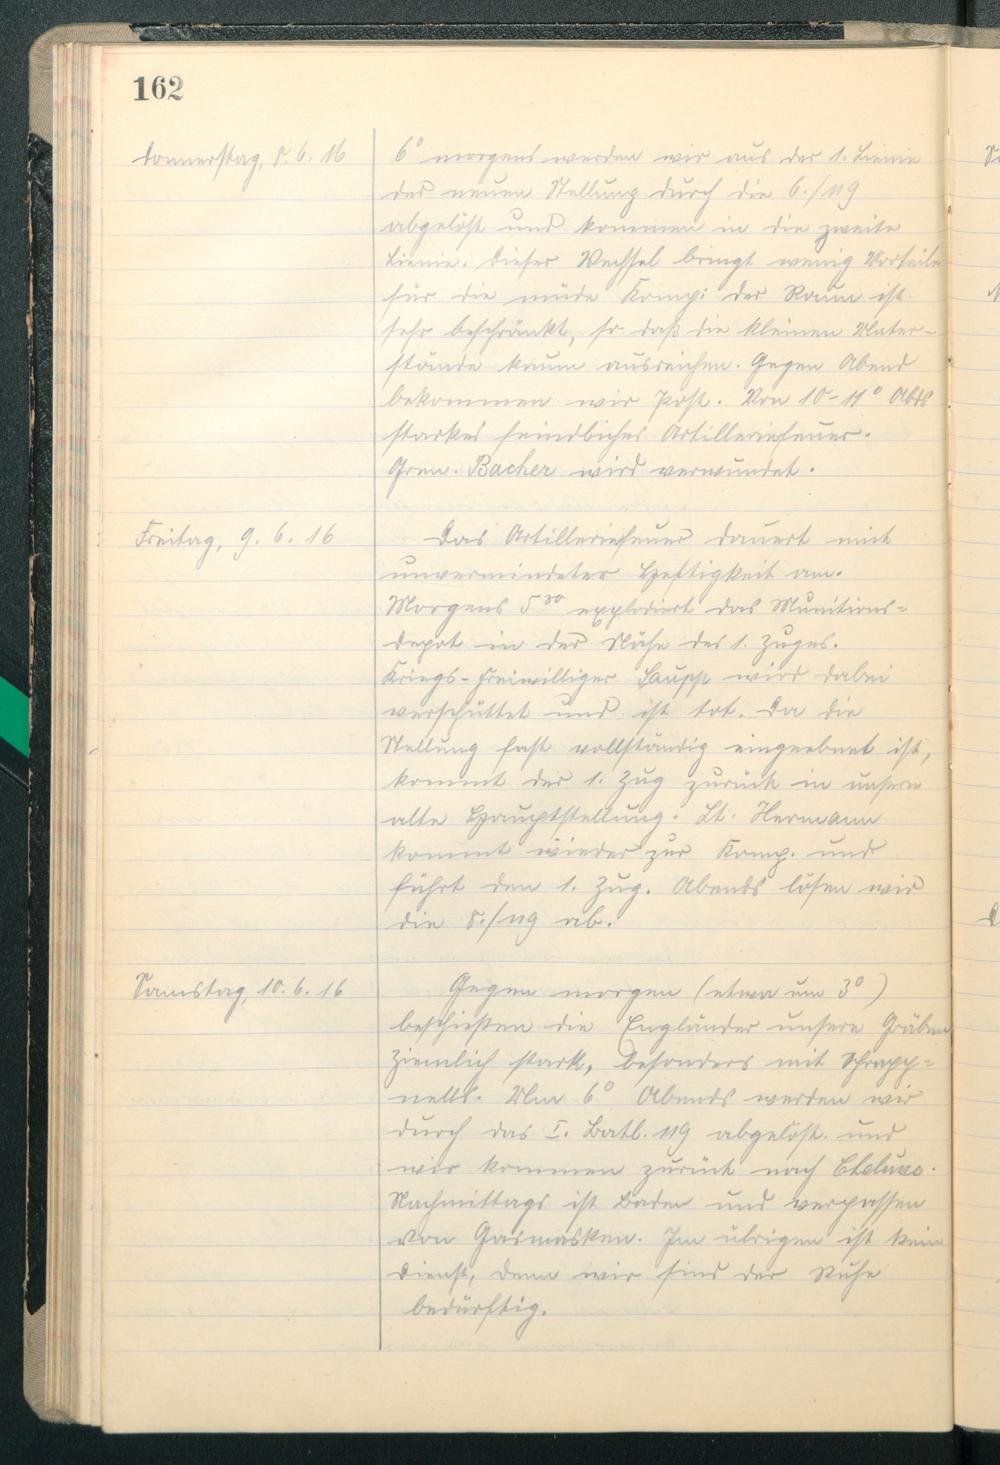 162
Donnerstag, 8. 6. 16
6° morgens werden wir aus der 1. Lienie
der neuen Stellung durch die 6./119
abgelöst und kommen in die zweite
Lienie. Dieser Wechsel bringt wenig Vorteile
für die müde Komp: der Raum ist
sehr beschränkt, so daß die kleinen Unter-
stände kaum ausreichen. Gegen Abend
bekommen wir Post. Von 10-11° Abds
starkes feindliches Artilleriefeuer.
Gren. Bacher wird verwundet.
Freitag, 9. 6. 16
Das Artilleriefeuer dauert mit
unvermindeter Heftigkeit an.
Morgens 5³⁰ explodiert das Munitions=
depot in der Nähe des 1. Zuges.
Kriegs-Freiwilliger Saupp wird dabei
verschüttet und ist tot. Da die
Stellung fast vollständig eingeebnet ist,
kommt der 1. Zug zurück in unsere
alte Hauptstellung. Lt. Hermann
kommt wieder zur Komp. und
führt den 1. Zug. Abends lösen wir
die 8./119 ab.
Samstag, 10. 6. 16
Gegen morgen (etwa um 3°)
beschießen die Engländer unsere Gräben
ziemlich stark, besonders mit Schrapp=
nells. Um 6° Abends werden wir
durch das I. Batl. 119 abgelöst. und
wir kommen zurück nach
Nachmittags ist Baden und verpassen
von Gasmasken. Im übrigen ist kein
Dienst, denn wir sind der Ruhe
bedürftig.